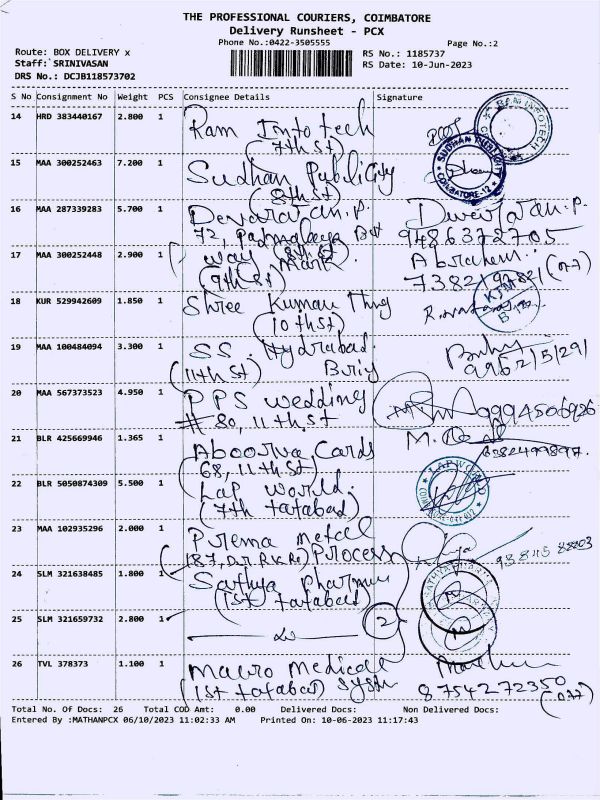 THE PROFESSIONAL COURIERS, COIMBATORE
Delivery Runsheet - PCX
Phone No.:0422-3505555
Page No.:2
Route: BOX DELIVERY x
Staff: SRINIVASAN
DRS No.: DCJB118573702
RS No.: 1185737
RS Date: 10-Jun-2023
S No Consignment No Weight PCS Consignee Details Signature
14 HRD 383440167 2.800 1 Ram Info tech
(7th st)
15 MAA 300252463 7.200 1 Sudhan Publicity
(8th st)
SUDHAN PUBLICITY
COIMBATORE-12
16 MAA 287339283 5.700 1 Devarajan.P.
72,
9486372705
17 MAA 300252448 2.900 1 way Mark
(9th st)
18 KUR 529942609 1.850 1 Shree Kumaran
(10th st)
19 MAA 100484094 3.300 1 SS. Hydrabad
(11th st) Briy
20 MAA 567373523 4.950 1 PPS wedding
# 80, 11th st
9994506926
21 BLR 425669946 1.365 1 Aboorva Cards
68, 11th st)
22 BLR 5050874309 5.500 1 Lap World.
(7th tatabad)
LAP WORLD
23 MAA 102935296 2.000 1 Prema metal
Process
24 SLM 321638485 1.800 1 Sathya Pharma
(1st tatabad)
25 SLM 321659732 2.800 1
2
26 TVL 378373 1.100 1 Macro Medical
(1st tatabad) System
8754272350
Total No. Of Docs: 26 Total COD Amt: 0.00 Delivered Docs: Non Delivered Docs:
Entered By :MATHANPCX 06/10/2023 11:02:33 AM Printed On: 10-06-2023 11:17:43